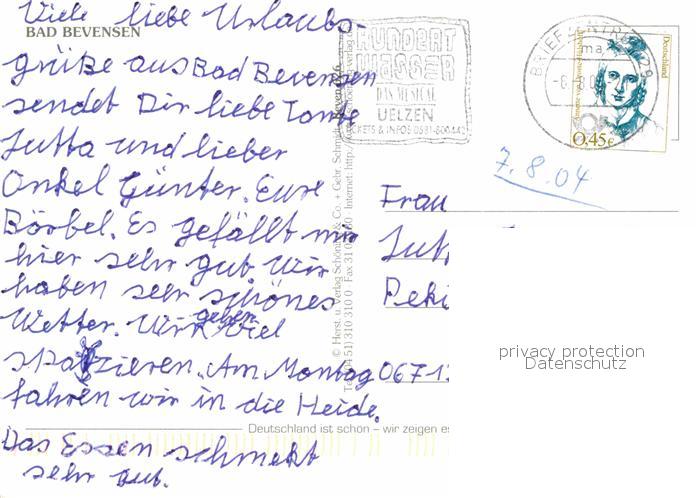 Viele liebe Urlaubs-
BAD BEVENSEN
grüße aus Bad Bevensen
sendet Dir liebe Tante
Jutta und lieber
Onkel Günter. Eure
Bärbel. Es gefällt mir
hier sehr gut. Wir
haben sehr schönes
Wetter. Wir gehen viel
spazieren. Am Montag
fahren wir in die Heide.
Das Essen schmekt
sehr gut.
HUNDERT
WASSER
DAS MUSICAL
UELZEN
TICKETS & INFOS 0581-800442
BRIEFZENTRUM 29
ma
-6.8.
Deutschland
0,45€
7.8.04
Frau
Jutt
Peki
0671
© Herst. u. Verlag Schöning & Co. + Gebr. Schmidt
Tel. (04 51) 310 310 0 Fax 31 03
Internet: http://
privacy protection
Datenschutz
Deutschland ist schön – wir zeigen es